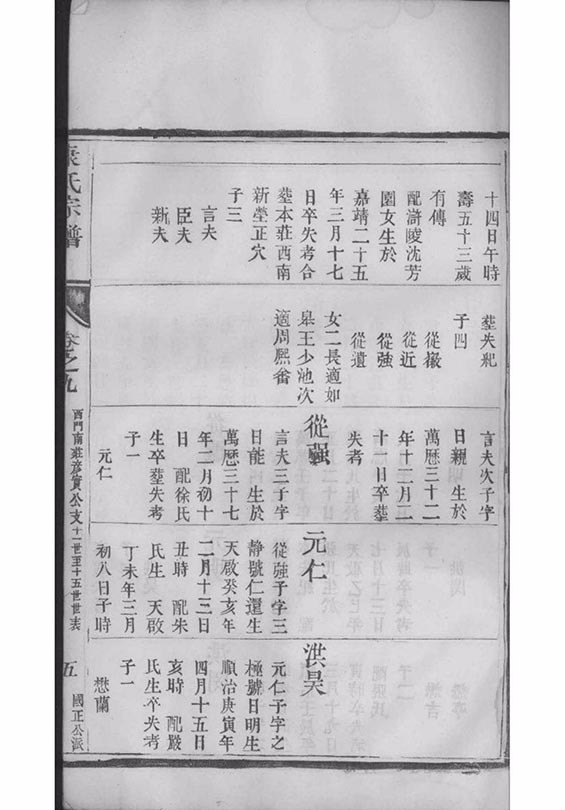 十四日午時
壽五十三歲
有傳
配滸陵沈芳
園女生於
嘉靖二十五
年三月十七
日卒失考合
塟本莊西南
新塋正穴
子三
言夫
臣夫
新夫
塟失紀
子四
從徽
從近
從強
從遺
女二長適如
臯王少池次
適周熙畨
言夫次子字
日親 生於
萬曆三十二
年十二月二
十二日卒塟
失考
從強
言夫三子字
日能 生於
萬曆三十七
年二月初十
日 配徐氏
生卒塟失考
子一
元仁
元仁
從強子字三
靜號仁還生
天啟癸亥年
二月十三日
丑時 配朱
氏生 天啟
丁未年三月
初八日子時
洪昊
元仁子字之
極號日明生
順治庚寅年
四月十五日
亥時 配嚴
氏生卒失考
子一
懋蘭
袁氏宗譜
卷之九
西門南莊彥實公支十一世至十五世世表
五
國正公派